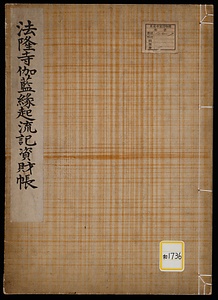 法隆寺伽藍縁起流記資財帳
1736